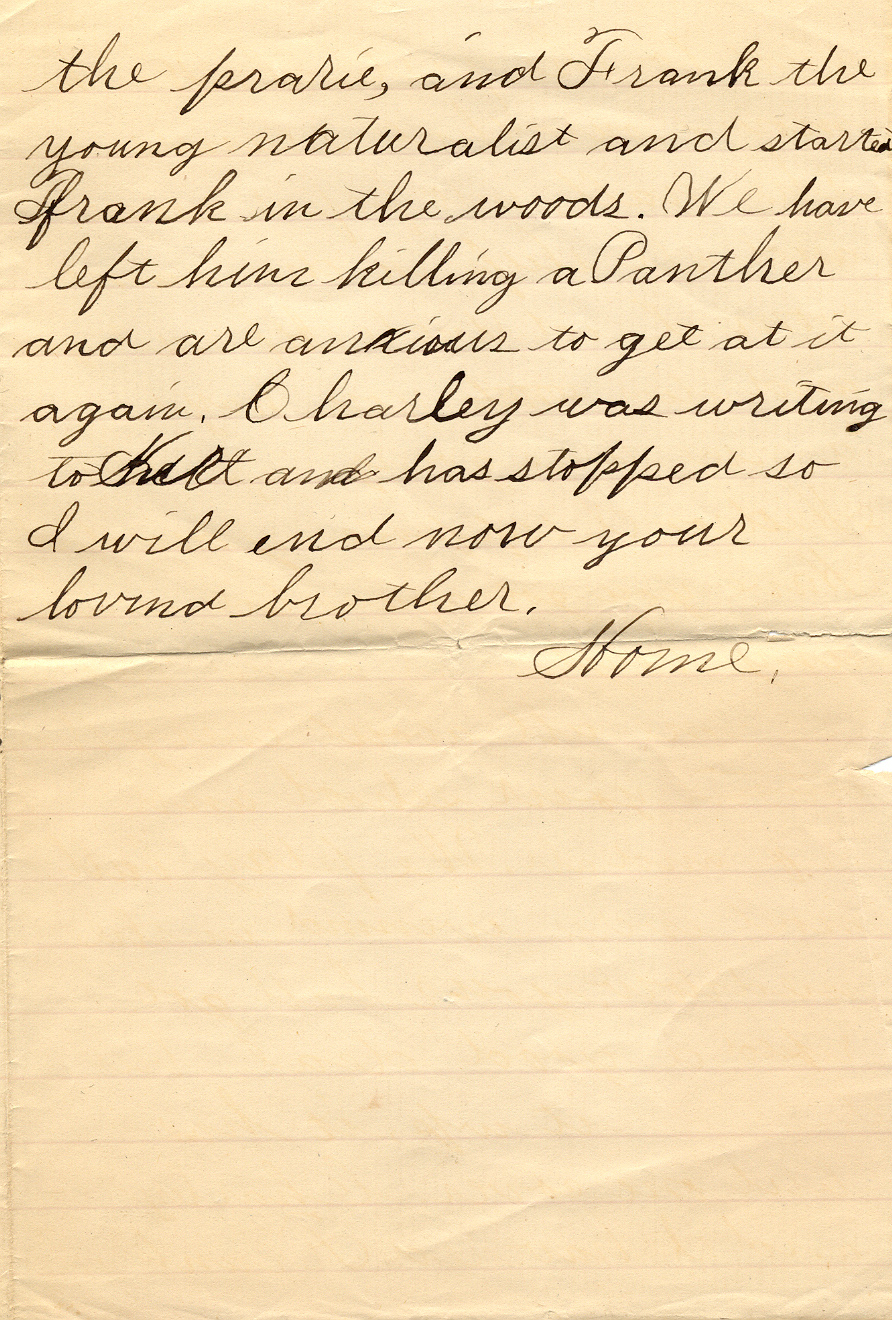 the prarie, and Frank the
young naturalist and started
frank in the woods. We have
left him killing a Panther
and are anxious to get at it
again. Charley was writing
to and has stopped so
I will end now your
lovind brother.
Home.